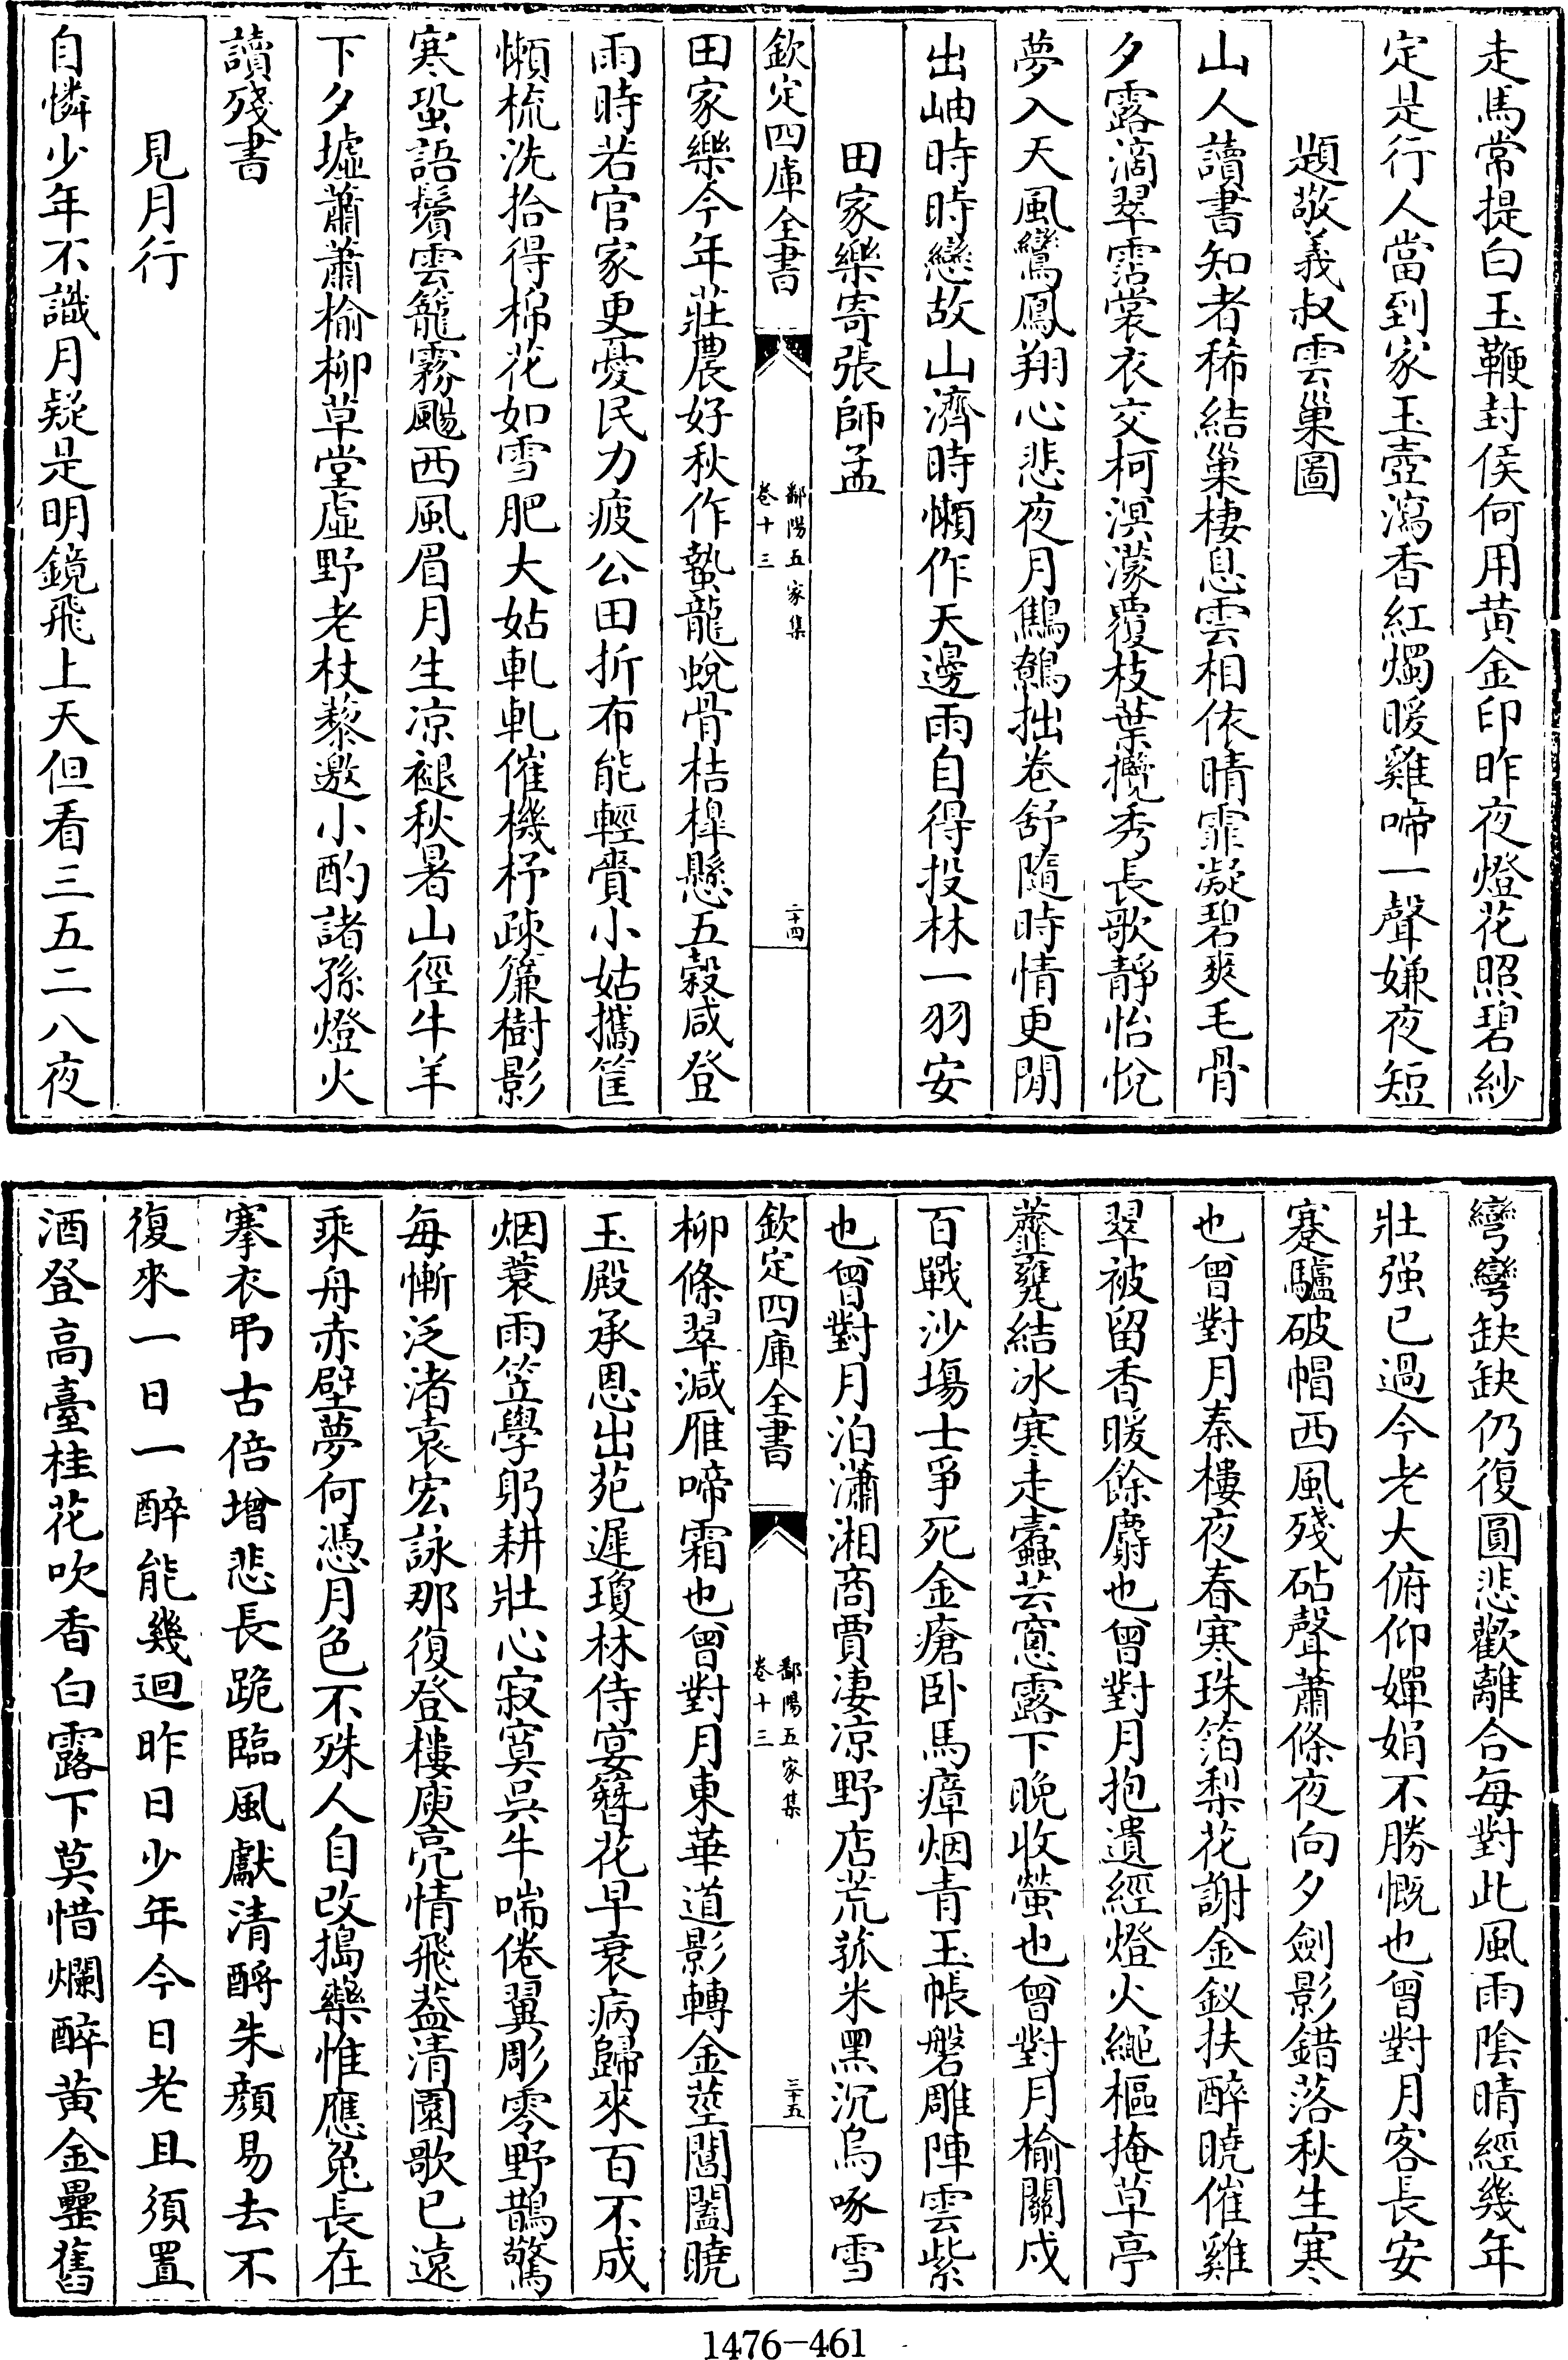 走馬常提白玉鞭封侯何用黃金印昨夜燈花照碧紗
定是行人當到家玉壺瀉香紅燭暖雞啼一聲嫌夜短
題敬義叔雲巢圖
山人讀書知者稀結巢棲息雲相依晴霏凝碧爽毛骨
夕露滴翠霑裳衣交柯溟濛覆枝葉攬秀長歌靜怡悅
夢入天風鸞鳳翔心悲夜月鷦鷯拙卷舒隨時情更閒
出岫時時戀故山濟時懶作天邊雨自得投林一羽安
田家樂寄張師孟
欽定四庫全書
鄱陽五家集
卷十三
二十四
田家樂今年莊農好秋作蟄龍蛻骨桔橰懸五穀咸登
雨時若官家更憂民力疲公田折布能輕賫小姑攜筐
懶梳洗拾得棉花如雪肥大姑軋軋催機杼疎簾樹影
寒蛩語鬢雲籠霧颺西風眉月生凉褪秋暑山徑牛羊
下夕墟蕭蕭榆柳草堂虛野老杖藜邀小酌諸孫燈火
讀殘書
見月行
自憐少年不識月疑是明鏡飛上天但看三五二八夜
彎彎缺缺仍復圓悲歡離合每對此風雨陰晴經幾年
壯强已過今老大俯仰嬋娟不勝慨也曾對月客長安
蹇驢破帽西風殘砧聲蕭條夜向夕劍影錯落秋生寒
也曾對月秦樓夜春寒珠箔梨花謝金釵扶醉曉催雞
翠被留香暖餘麝也曾對月抱遺經燈火繩樞掩草亭
虀甕結冰寒走蠧芸窓露下晚收螢也曾對月榆關戍
百戰沙塲士爭死金瘡卧馬瘴烟青玉帳磐雕陣雲紫
也曾對月泊瀟湘商賈凄凉野店荒菰米黑沉烏啄雪
欽定四庫全書
鄱陽五家集
卷十三
三十五
柳條翠減雁啼霜也曾對月東華道影轉金莖閶闔曉
玉殿承恩出苑遲瓊林侍宴簪花早衰病歸來百不成
烟蓑雨笠學躬耕壯心寂寞吳牛喘倦翼彫零野鵲驚
每慚泛渚袁宏詠那復登樓庾亮情飛葢清園歌已遠
乘舟赤壁夢何憑月色不殊人自改搗藥惟應兔長在
搴衣弔古倍增悲長跪臨風獻清酹朱顏易去不
復來一日一醉能幾迴昨日少年今日老且須置
酒登高臺桂花吹香白露下莫惜爛醉黃金罍舊
1476-461